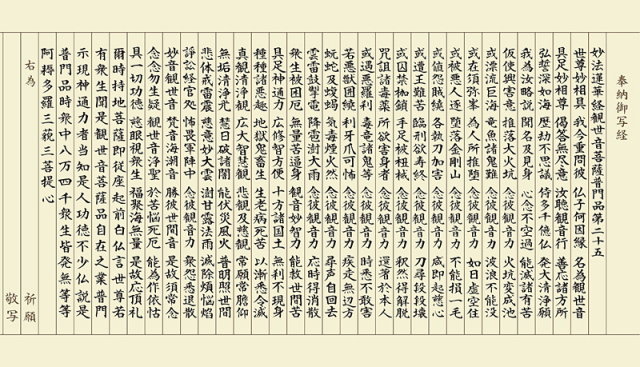 奉納御写経
妙法蓮華経観世音菩薩普門品第二十五
世尊妙相具 我今重問彼 仏子何因縁 名為観世音
具足妙相尊 偈答無尽意 汝聴観音行 善応諸方所
弘誓深如海 歴劫不思議 侍多千億仏 発大清浄願
我為汝略説 聞名及見身 心念不空過 能滅諸有苦
仮使興害意 推落大火坑 念彼観音力 火坑変成池
或漂流巨海 竜魚諸鬼難 念彼観音力 波浪不能没
或在須弥峯 為人所推堕 念彼観音力 如日虚空住
或被悪人逐 堕落金剛山 念彼観音力 不能損一毛
或値怨賊繞 各執刀加害 念彼観音力 咸即起慈心
或遭王難苦 臨刑欲寿終 念彼観音力 刀尋段段壊
或囚禁枷鎖 手足被杻械 念彼観音力 釈然得解脱
呪詛諸毒薬 所欲害身者 念彼観音力 還著於本人
或遇悪羅刹 毒竜諸鬼等 念彼観音力 時悉不敢害
若悪獣囲繞 利牙爪可怖 念彼観音力 疾走無辺方
蚖蛇及蝮蝎 気毒煙火然 念彼観音力 尋声自回去
雲雷鼓掣電 降雹澍大雨 念彼観音力 応時得消散
衆生被困厄 無量苦逼身 観音妙智力 能救世間苦
具足神通力 広修智方便 十方諸国土 無刹不現身
種種諸悪趣 地獄鬼畜生 生老病死苦 以漸悉令滅
真観清浄観 広大智慧観 悲観及慈観 常願常瞻仰
無垢清浄光 慧日破諸闇 能伏災風火 普明照世間
悲体戒雷震 慈意妙大雲 澍甘露法雨 滅除煩悩焔
諍訟経官処 怖畏軍陣中 念彼観音力 衆怨悉退散
妙音観世音 梵音海潮音 勝彼世間音 是故須常念
念念勿生疑 観世音浄聖 於苦悩死厄 能為作依怙
具一切功徳 慈眼視衆生 福聚海無量 是故応頂礼
爾時持地菩薩即従座起前白仏言世尊若
有衆生聞是観世音菩薩品自在之業普門
示現神通力者当知是人功徳不少仏説是
普門品時衆中八万四千衆生皆発無等等
阿耨多羅三藐三菩提心
右為
祈願
敬写